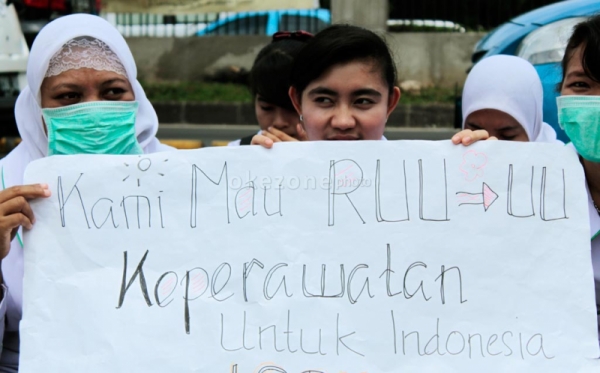 Kami Mau RUU → UU
okezone photo
Keperawatan
Untuk Indonesia